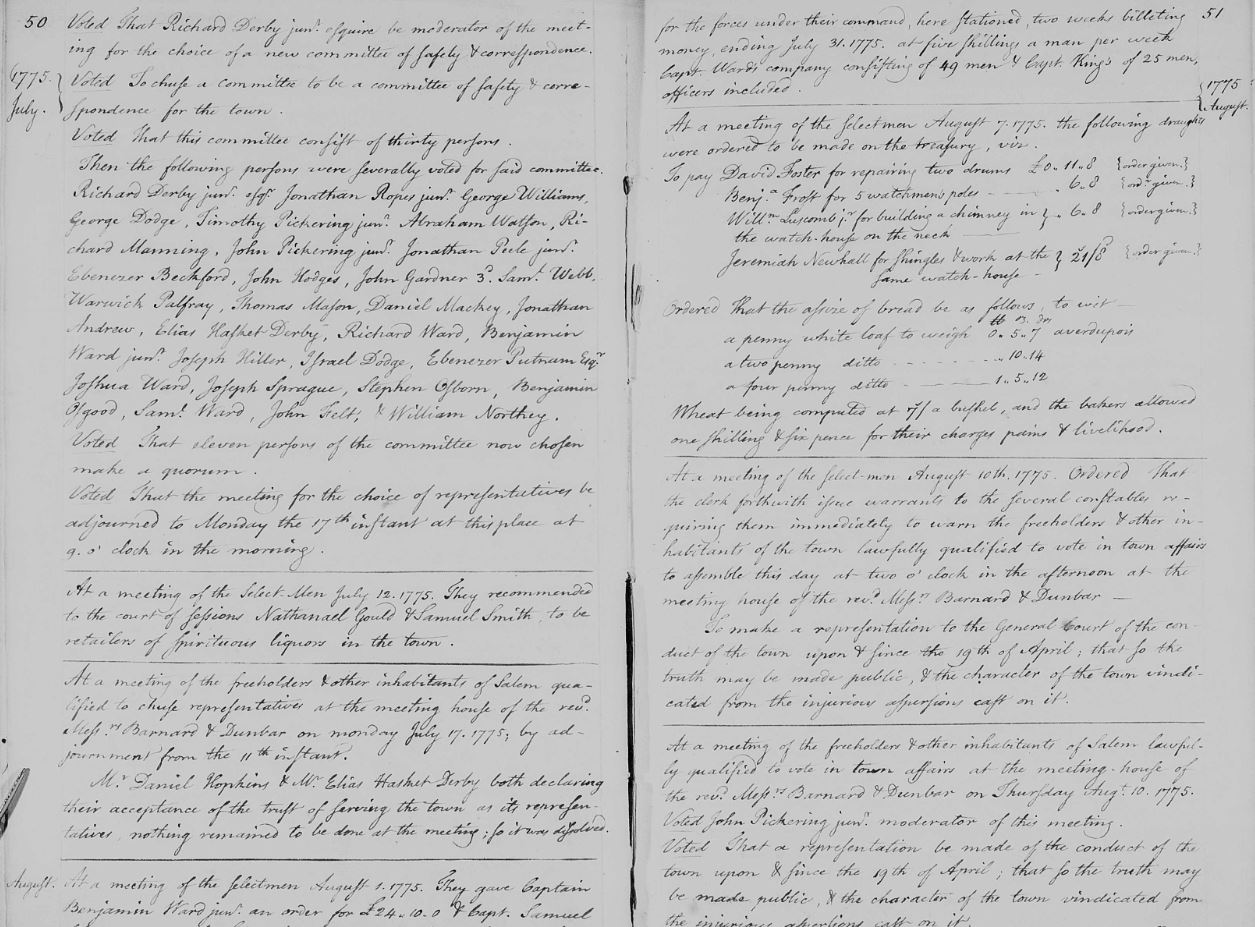 50
Voted That Richard Derby junr. esquire be moderator of the meet-
ing for the choice of a new committee of safety & correspondence.
1775.
July.
Voted To chuse a committee to be a committee of safety & corre-
spondence for the town.
Voted That this committee consist of thirty persons.
Then the following persons were severally voted for said committee.
Richard Derby junr. esqr. Jonathan Ropes junr. George Williams,
George Dodge, Timothy Pickering junr. Abraham Watson, Ri-
chard Manning, John Pickering junr. Jonathan Peele junr.
Ebenezer Beckford, John Hodges, John Gardner 3d. Saml. Webb,
Warwick Palfray, Thomas Mason, Daniel Mackey, Jonathan
Andrew, Elias Hasket Derby, Richard Ward, Benjamin
Ward junr. Joseph Hiller, Israel Dodge, Ebenezer Putnam Esqr
Joshua Ward, Joseph Sprague, Stephen Osborn, Benjamin
Osgood, Saml. Ward, John Felt, & William Northey.
Voted That eleven persons of the committee now chosen
make a quorum.
Voted That the meeting for the choice of representatives be
adjourned to Monday the 17th instant at this place at
9. o' clock in the morning.
At a meeting of the Select-Men July 12. 1775. They recommended
to the court of sessions Nathanael Gould & Samuel Smith, to be
retailers of spirituous liquors in the town.
At a meeting of the freeholders & other inhabitants of Salem qua-
lified to chuse representatives at the meeting house of the revd.
Messrs. Barnard & Dunbar on monday July 17. 1775; by ad-
journment from the 11th instant.
Mr. Daniel Hopkins & Mr. Elias Hasket Derby both declaring
their acceptance of the trust of serving the town as its represen-
tatives, nothing remained to be done at the meeting; so it was dissolved.
August.
At a meeting of the selectmen August 1. 1775. They gave Captain
Benjamin Ward junr. an order for £24..10..0 & Capt. Samuel
51
for the forces under their command, here stationed, two weeks billeting
money, ending July 31. 1775. at five shillings a man per week
Capt. Ward's company consisting of 49 men & Capt. King's of 25 men,
officers included.
1775
August.
At a meeting of the selectmen August 7. 1775. the following draughts
were ordered to be made on the treasury, viz.
To pay David Foster for repairing two drums £0..11..8 {order given.}
Benja. Frost for 5 watchmen's poles 6..8 {ordr. given.}
Willm. Luscomb jr. for building a chimney in } .. 6..8 {order given.}
the watch-house on the neck
Jeremiah Newhall for shingles & work at the } 21/8 {order given.}
same watch-house
Ordered That the assize of bread be as follows, to wit —
lb oz. drs
a penny white loaf to weigh 0..5..7 averdupois
a two penny ditto .. 10..14
a four penny ditto 1..5..12
Wheat being computed at 7/ a bushel, and the bakers allowed
one shilling & six pence for their charges pains & livelihood.
At a meeting of the Select-men August 10th. 1775. Ordered That
the clerk forthwith issue warrants to the several constables re-
quiring them immediately to warn the freeholders & other in-
habitants of the town lawfully qualified to vote in town affairs
to assemble this day at two o' clock in the afternoon at the
meeting house of the revd. Messrs. Barnard & Dunbar —
To make a representation to the General Court of the con-
duct of the town upon & since the 19th of April; that so the
truth may be made public, & the character of the town vindi-
cated from the injurious aspersions cast on it.
At a meeting of the freeholders & other inhabitants of Salem lawful-
ly qualified to vote in town affairs at the meeting-house of
the revd. Messrs. Barnard & Dunbar on Thursday Augt. 10. 1775.
Voted John Pickering junr. moderator of this meeting.
Voted That a representation be made of the conduct of the
town upon & since the 19th of April; that so the truth may
be made public, & the character of the town vindicated from
the injurious aspersions cast on it.